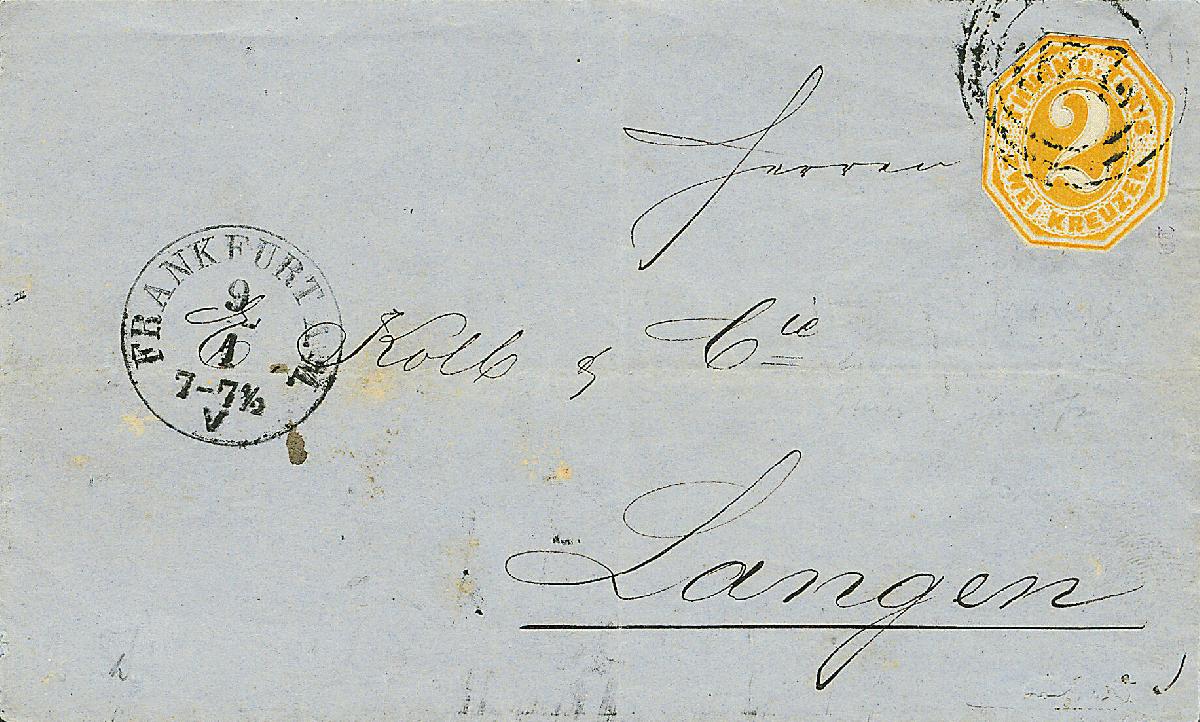 THURN U. TAXIS
2
ZWEI KREUZER
Herren
FRANKFURT A.M.
9
1
7-7½
V
Kolb & Cie
Langen